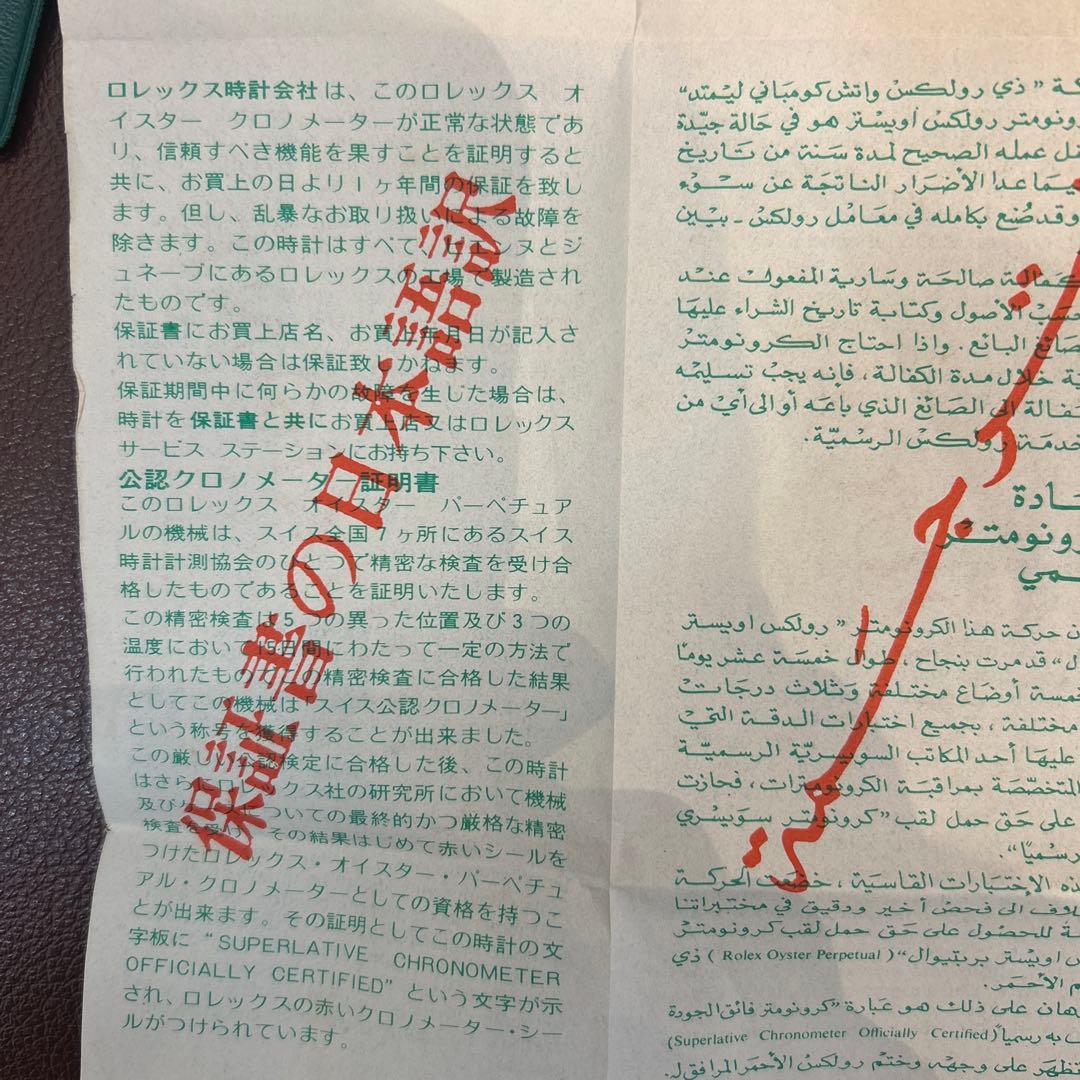 ロレックス時計会社は、このロレックス オ
イスター クロノメーターが正常な状態であ
り、信頼すべき機能を果すことを証明すると
共に、お買上の日より1ヶ年間の保証を致し
ます。但し、乱暴なお取り扱いによる故障を
除きます。この時計はすべて、ビエンヌとジ
ュネーブにあるロレックスの工場で製造され
たものです。
保証書にお買上店名、お買上年月日が記入さ
れていない場合は保証致しかねます。
保証期間中に何らかの故障を生じた場合は、
時計を保証書と共にお買上店又はロレックス
サービス ステーションにお持ち下さい。
公認クロノメーター証明書
このロレックス オイスター パーペチュア
ルの機械は、スイス全国7ヶ所にあるスイス
時計計測協会のひとつで精密な検査を受け合
格したものであることを証明いたします。
この精密検査は5つの異った位置及び3つの
温度において15日間にわたって一定の方法で
行われたものでこの精密検査に合格した結果
としてこの機械は「スイス公認クロノメーター」
という称号を獲得することが出来ました。
この厳しい公認検定に合格した後、この時計
はさらにロレックス社の研究所において機械
及び ついての最終的かつ厳格な精密
検査を受け、その結果はじめて赤いシールを
つけたロレックス・オイスター・パーペチュ
アル・クロノメーターとしての資格を持つこ
とが出来ます。その証明としてこの時計の文
字板に “SUPERLATIVE CHRONOMETER
OFFICIALLY CERTIFIED” という文字が示
され、ロレックスの赤いクロノメーター・シー
ルがつけられています。
保証書の日本語訳
كة ” ذي رولكس واتش كومباني ليمتد“
رونومتر رولكس أويستر هو في حالة جيّدة
عمله الصحيح لمدة سنة من تاريخ
يما عدا الأضرار الناتجة عن سوء
وقد صُنع بكامله في معامل رولكس - بيين
كفالة صالحة وسارية المفعول عند
حسب الأصول وكتابة تاريخ الشراء عليها
صائغ البائع. واذا احتاج الكرونومتر
ية خلال مدة الكفالة، فإنه يجب تسليمه
فالة الى الصائغ الذي باعه أو الى أي من
خدمة رولكس الرسميّة.
ادة
رونومتر
مي
ن حركة هذا الكرونومتر ” رولكس اويستر
ال“ قد مرت بنجاح، طوال خمسة عشر يومًا
خمسة أوضاع مختلفة وثلاث درجات
مختلفة، بجميع اختبارات الدقة التي
عليها أحد المكاتب السويسريّة الرسميّة
المتخصّصة بمراقبة الكرونومترات، فحازت
على حق حمل لقب ”كرونومتر سويسري
رسميًا“.
ذه الإختبارات القاسية، خضعت الحركة
لاف الى فحص أخير ودقيق في مختبراتنا
ة للحصول على حق حمل لقب كرونومتر
س اويستر بربتيوال“ (Rolex Oyster Perpetual) ذي
م الأحمر.
هان على ذلك هو عبارة ”كرونومتر فائق الجودة
به رسمياً (Superlative Chronometer Officially Certified)
تظهر على وجهه وختم رولكس الأحمر المرافق ل.